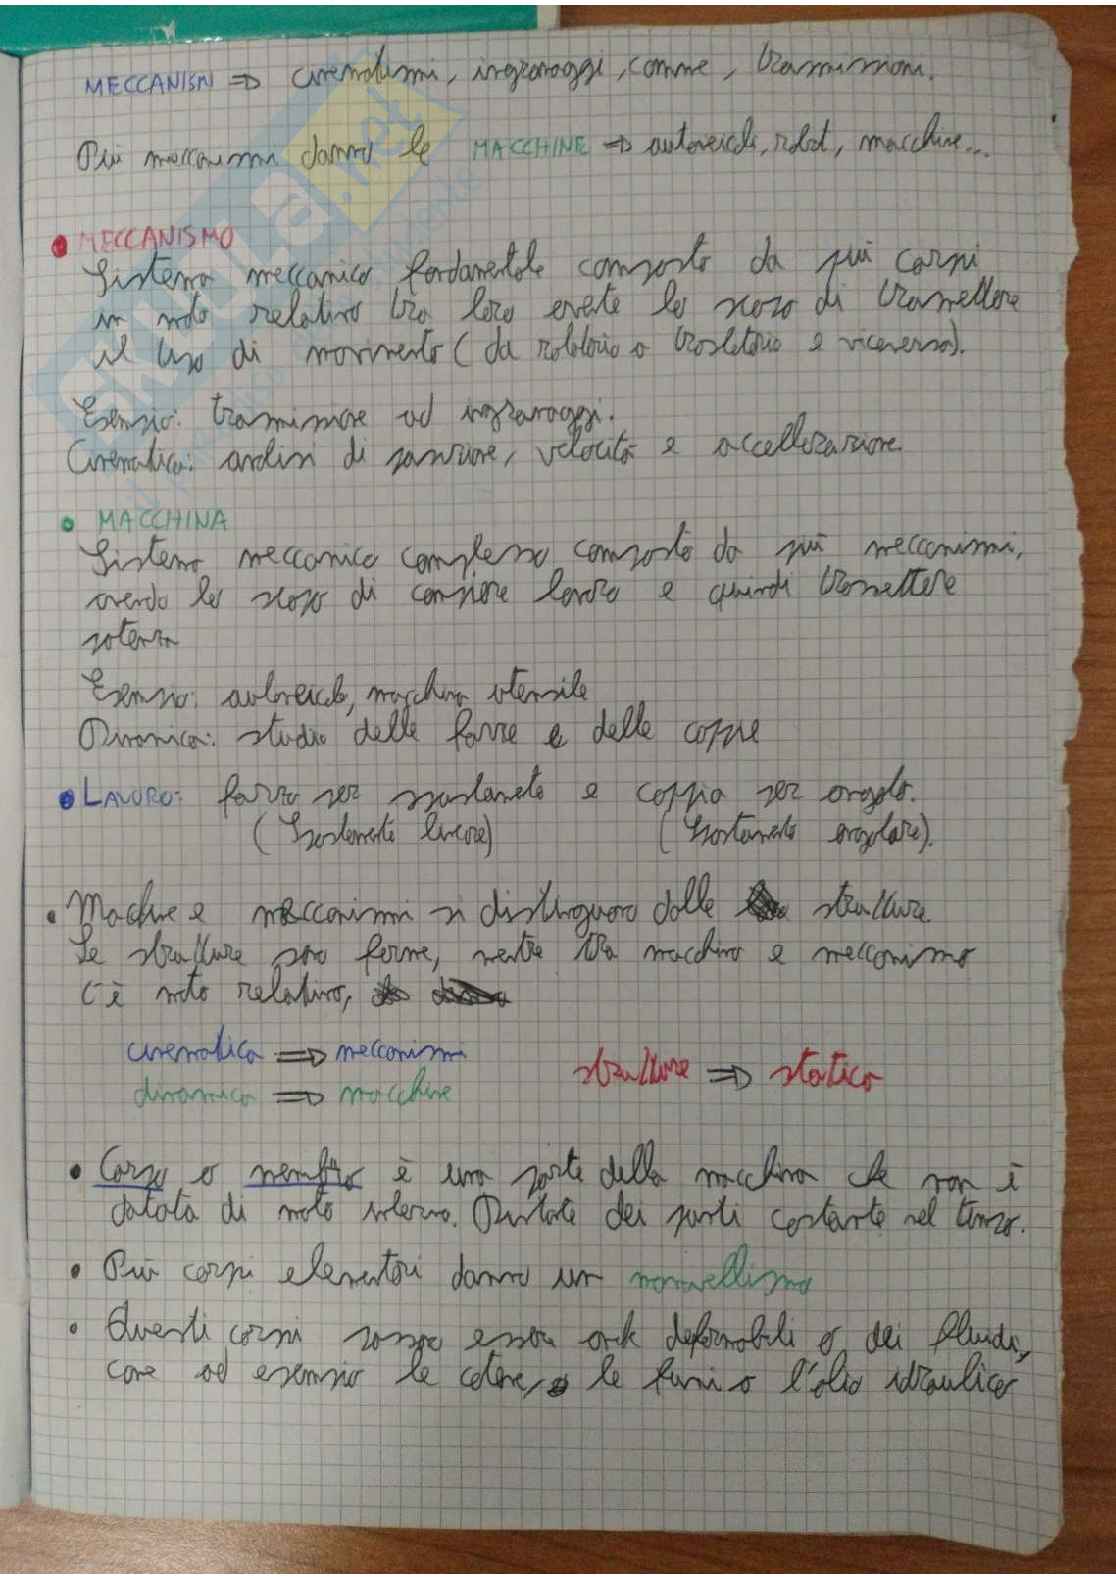 MECCANISMI => cinematismi, ingranaggi, camme, trasmissioni.
Più meccanismi danno le MACCHINE => autoveicoli, robot, macchine...
• MECCANISMO
Sistema meccanico fondamentale composto da più corpi
in moto relativo tra loro avente lo scopo di trasmettere
il tipo di movimento (da rotatorio a traslatorio e viceversa).
Esempio: trasmissione ad ingranaggi.
Cinematica: analisi di posizione, velocità e accellerazione.
• MACCHINA
Sistema meccanico complesso composto da più meccanismi,
avendo lo scopo di compiere lavoro e quindi trasmettere
potenza
Esempio: autoveicolo, macchina utensile
Dinamica: studio delle forze e delle coppie
• LAVORO: forza per spostamento e coppia per angolo.
(Spostamento lineare) (Spostamento angolare).
• Macchine e meccanismi si distinguono dalle strutture.
Le strutture sono ferme, mentre tra macchina e meccanismo
c'è moto relativo,
cinematica => meccanismi
strutture => statica
dinamica => macchine
• Corpo o membro è una parte della macchina che non è
dotata di moto interno. Distate dei punti costante nel tempo.
• Più corpi elementari danno un
• Questi corpi possono essere anche deformabili o dei fluidi,
come ad esempio le catene, le funi o l'olio idraulico